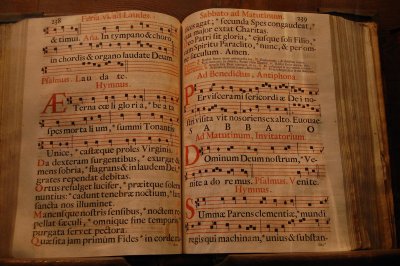 238
Feria vi. ad Laudes.
& timus. Ana. In tympano & choro,
in chordis & organo laudate Deum.
Psalmus. Laudate.
Hymnus.
Æ Terna cœli gloria, * beata
spes mortalium, * summi Tonantis
Unice, * castæque proles Virginis.
Da dexteram surgentibus, * exurgat &
mens sobria, * flagrans & in laudem Dei,*
grates rependat debitas.
Ortus refulget lucifer, * præitque solem
nuntius: * cadunt tenebræ noctium,* lux
sancta nos illuminet.
Manensque nostris sensibus, * noctem re-
pellat sæculi, * omnique fine temporis *
purgata servet pectora.
Quæsita jam primum Fides * in corde
Sabbato ad Matutinum.
239
agat; * secunda Spes congaudeat,*
qua major extat Charitas.
Deo Patri sit gloria, * ejusque soli Filio,*
cum Spiritu Paraclito, * nunc, & per om-
ne sæculum. Amen.
Ad Benedictus, Antiphona.
Per viscera misericordiæ Dei no-
stri visitavit nos oriens ex alto. Euouae.
SABBATO
Ad Matutinum, Invitatorium.
Dominum Deum nostrum, * Ve-
nite adoremus. Psalmus. Venite.
Hymnus.
Summæ Parens clementiæ, * mundi
regis qui machinam, * unius & substan-